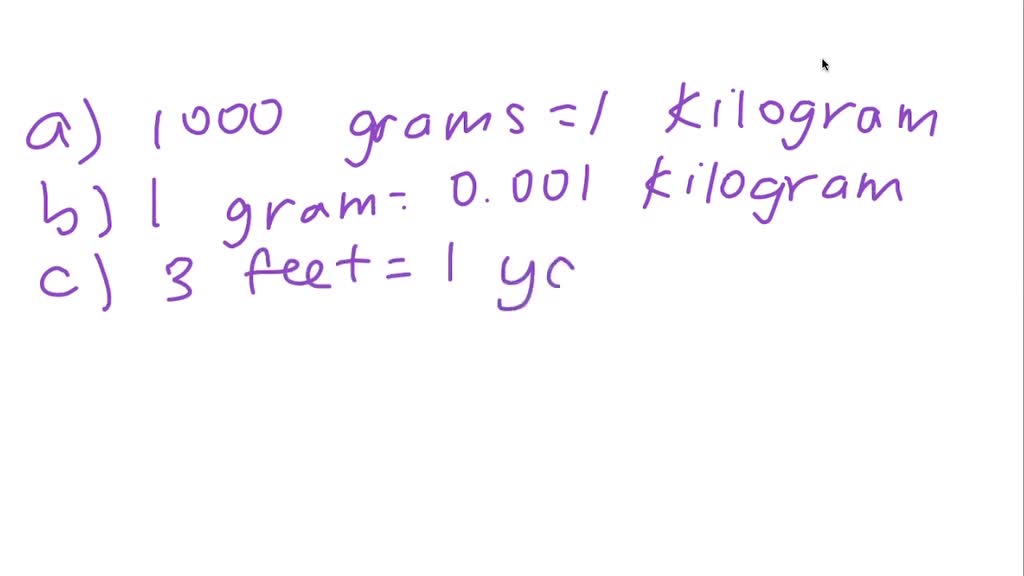 a) 1000 grams = 1 kilogram
b) 1 gram = 0.001 kilogram
c) 3 feet = 1 yc